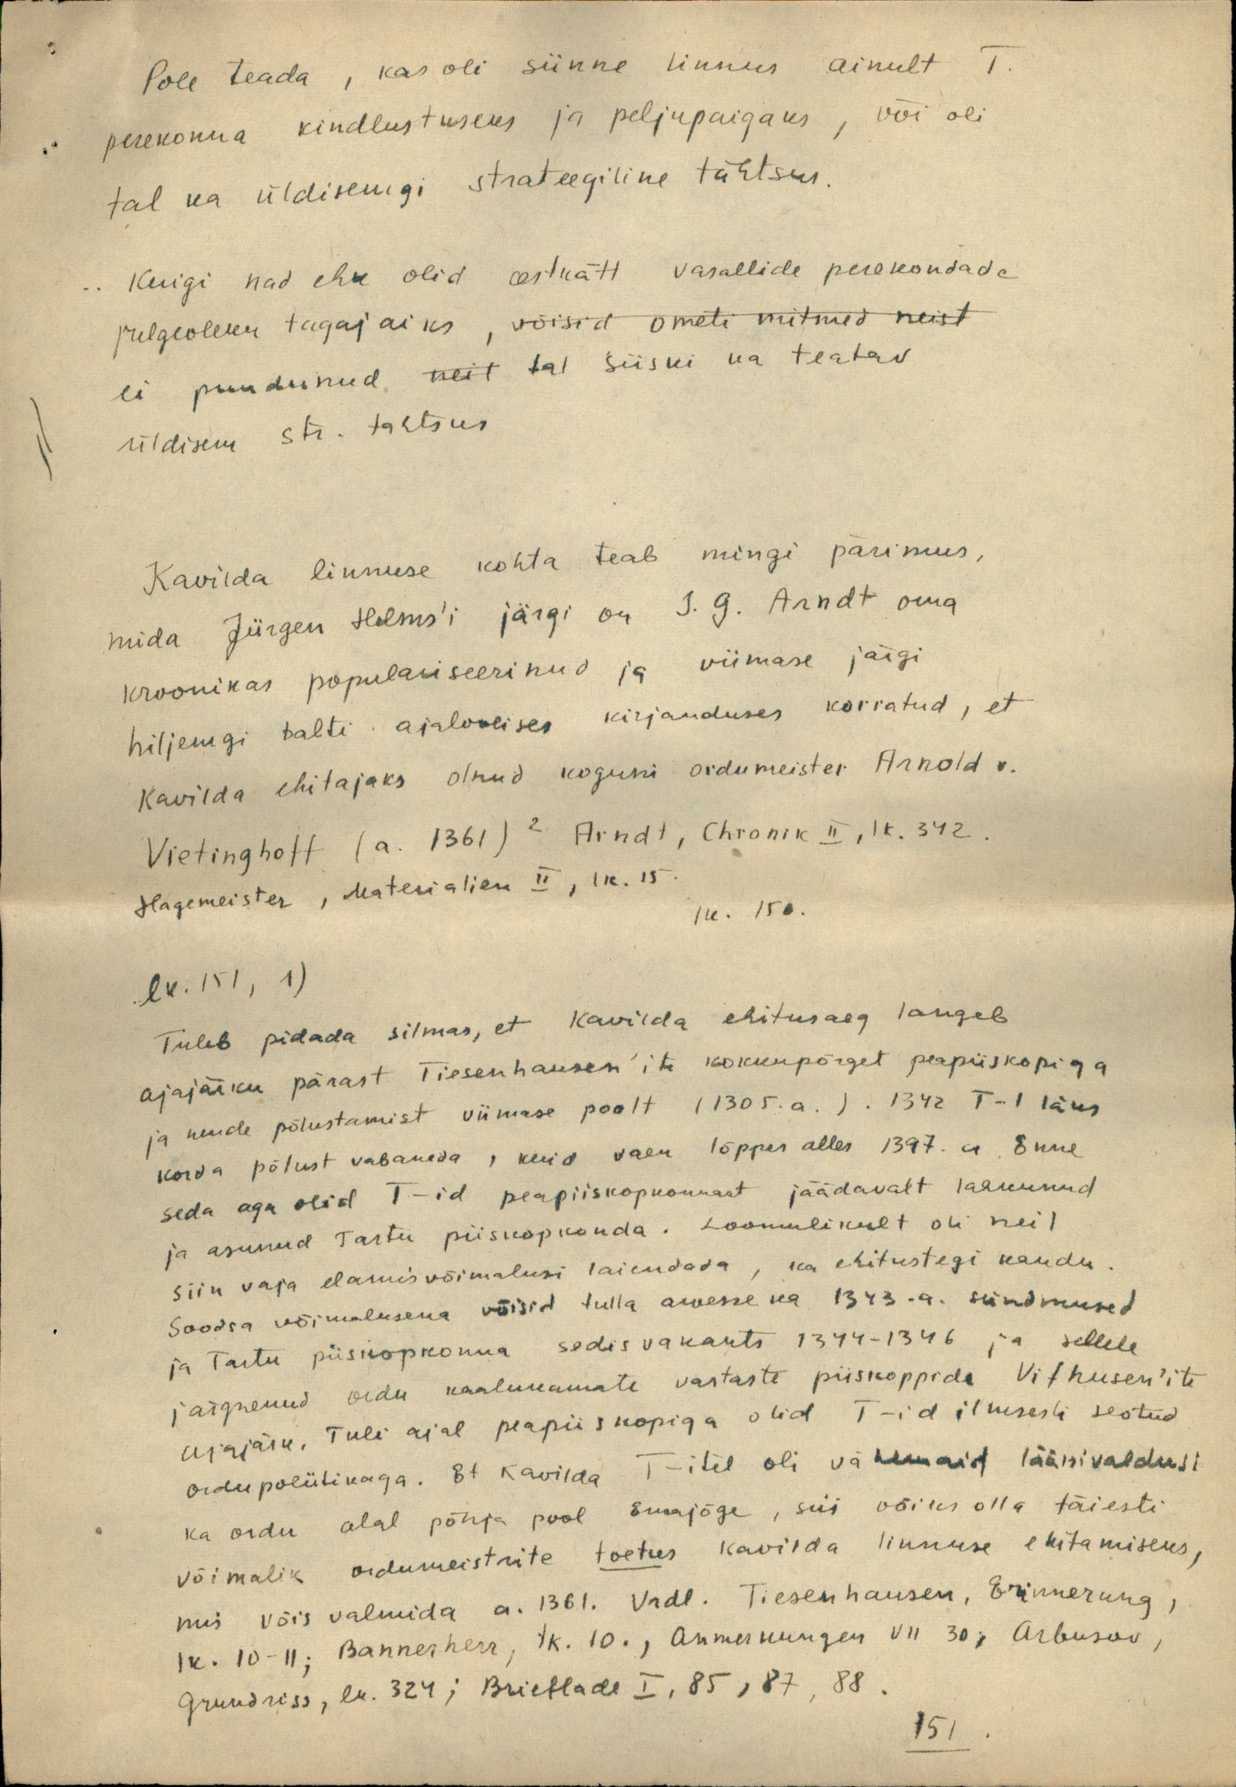 Pole teada, kas oli siinne linnus ainult T.
perekonna kindlustuseks ja peljupaigaks, või oli
tal ka üldisemgi strateegiline tähtsus.
.. Kuigi nad ehk olid eestkätt vasallide perekondade
julgeoleku tagajaiks, võisid ometi mitmed neist
ei puudunud neil tal siiski ka teatav
üldisem str. tähtsus
Kavilda linnuse kohta teab mingi pärimus,
mida Jürgen Helms'i järgi on J. G. Arndt oma
kroonikas populariseerinud ja viimase järgi
hiljemgi balti ajaloolises kirjanduses korratud, et
Kavilda ehitajaks olnud koguni ordumeister Arnold v.
Vietinghoff (a. 1361) 2 Arndt, Chronik II, lk. 342.
Hagemeister, Materialien II, lk. 15.
lk. 150.
lk. 151, 1)
Tuleb pidada silmas, et Kavilda ehitusaeg langeb
ajajärku pärast Tiesenhausen'ite kokkupõrget peapiiskopiga
ja nende põlustamist viimase poolt (1305. a.). 1342 T-l läks
korda põlust vabaneda, kuid vaen lõppes alles 1397. a. Enne
seda aga olid T-id peapiiskopkonnast jäädavalt lahkunud
ja asunud Tartu piiskopkonda. Loomulikult oli neil
siin vaja elamisvõimalusi laiendada, ka ehitustegi kaudu.
Soodsa võimalusena võisid tulla arvesse ka 1343. a. sündmused
ja Tartu piiskopkonna sedisvakants 1344-1346 ja sellele
järgnenud ordu kaalukamate vastaste piiskoppide Vifhusen'ite
ajajärk. Tüli ajal peapiiskopiga olid T-id ilmsesti seotud
ordupoliitikaga. Et Kavilda T-itel oli vähemaid läänivaldusi
ka ordu alal põhja pool Emajõge, siis võiks olla täiesti
võimalik ordumeistrite toetus Kavilda linnuse ehitamiseks,
mis võis valmida a. 1361. Vrdl. Tiesenhausen, Erinnerung,
lk. 10-11; Bannerherr, lk. 10., Anmerkungen VII 30; Arbusov,
Grundriss, lk. 324; Brieflade I, 85, 87, 88.
151.